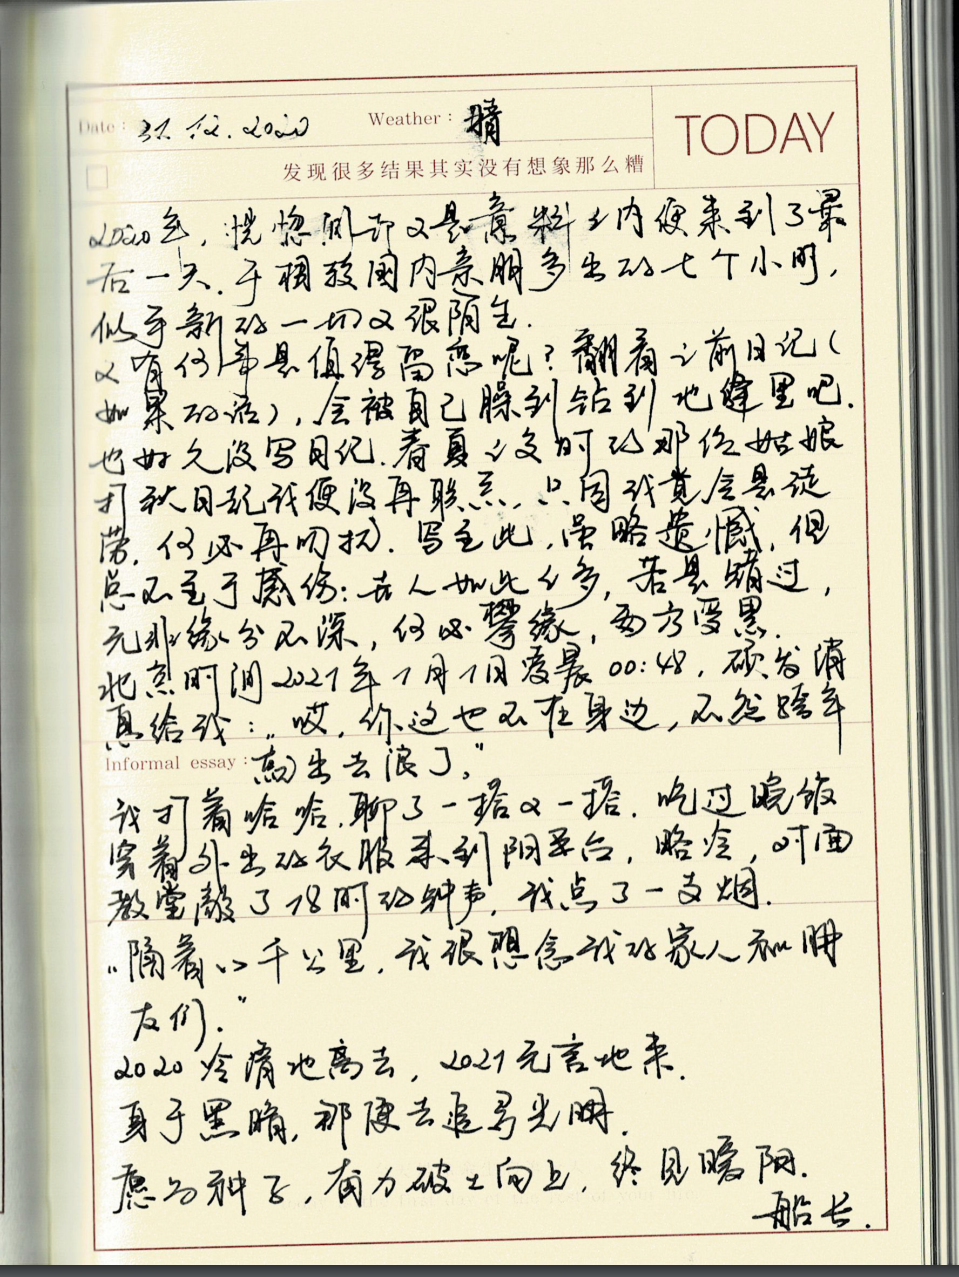 Date: 31.12.2020 Weather: 晴 TODAY
发现很多结果其实没有想象那么糟
2020年，恍惚间却又是意料之内便来到了最
后一天.于相较国内亲朋多出的七个小时，
似乎新的一切又很陌生.
又有何事是值得留恋呢？翻看之前日记（
如果的话），会被自己臊到钻到地缝里吧.
也好久没写日记.春夏之交时的那位姑娘
打秋日起我便没再联系.只因我竟会是徒
劳.何必再叨扰.写至此，虽略遗憾，但
总不至于感伤：世人如此之多，若是错过，
无非缘分不深，何必攀缘，两方受累.
北京时间2021年1月1日凌晨00:48，硕发消
息给我："哎，你这也不在身边，不然跨年
Informal essay: 高低出去浪了."
我打着哈哈.聊了一搭又一搭.吃过晚饭
穿着外出的衣服来到阳台，略冷，对面
教堂敲了18时的钟声，我点了一支烟.
"隔着八千公里，我很想念我的家人和朋
友们."
2020冷清地离去，2021无言地来.
身于黑暗，那便去追寻光明.
愿为种子，奋力破土向上，终见暖阳.
船长.